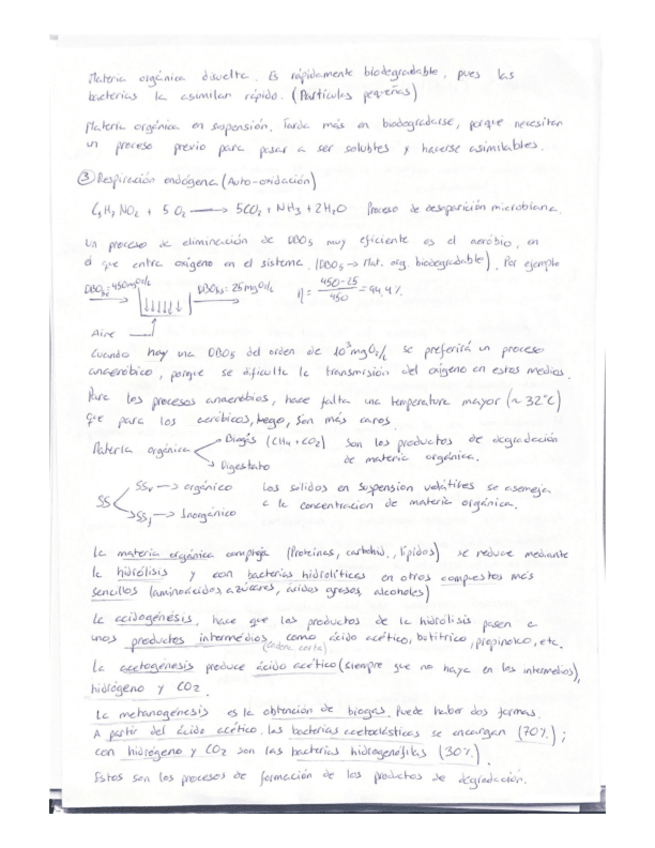 Materia orgánica disuelta. Es rápidamente biodegradable, pues las
bacterias la asimilan rápido. (Partículas pequeñas)
Materia orgánica en suspensión. Tarda más en biodegradarse, porque necesitan
un proceso previo para pasar a ser solubles y hacerse asimilables.
③ Respiración endógena (Auto-oxidación)
C5H7NO2 + 5O2 → 5CO2 + NH3 + 2H2O Proceso de desaparición microbiana.
Un proceso de eliminación de DBO5 muy eficiente es el aerobio, en
el que entra oxígeno en el sistema. (DBO5 → Mat. org. biodegradable). Por ejemplo
DBO5e = 450 mgO2/L DBO5s = 25 mgO2/L η = (450-25)/450 = 94,4%
Aire
Cuando hay una DBO5 del orden de 10³ mgO2/L se preferirá un proceso
anaeróbico, porque se dificulta la transmisión del oxígeno en estos medios.
Para los procesos anaerobios, hace falta una temperatura mayor (~32°C)
que para los aeróbicos, luego, son más caros.
Materia orgánica → Biogás (CH4 + CO2) Son los productos de degradación
→ Digestato de materia orgánica.
SS → SSv → orgánico Los sólidos en suspensión volátiles se asemeja
→ SSf → Inorgánico a la concentración de materia orgánica.
La materia orgánica compleja (Proteínas, carbohid., lípidos) se reduce mediante
la hidrólisis y con bacterias hidrolíticas en otros compuestos más
sencillos (aminoácidos, azúcares, ácidos grasos, alcoholes)
La acidogénesis, hace que los productos de la hidrólisis pasen a
unos productos intermedios, como ácido acético, butítrico, propinoico, etc.
(cadena corta)
La acetogénesis produce ácido acético (siempre que no haya en los intermedios),
hidrógeno y CO2.
La metanogénesis es la obtención de biogas. Puede haber dos formas.
A partir del ácido acético, las bacterias acetoclásticas se encargan (70%);
con hidrógeno y CO2 son las bacterias hidrogenófilas (30%).
Estos son los procesos de formación de los productos de degradación.